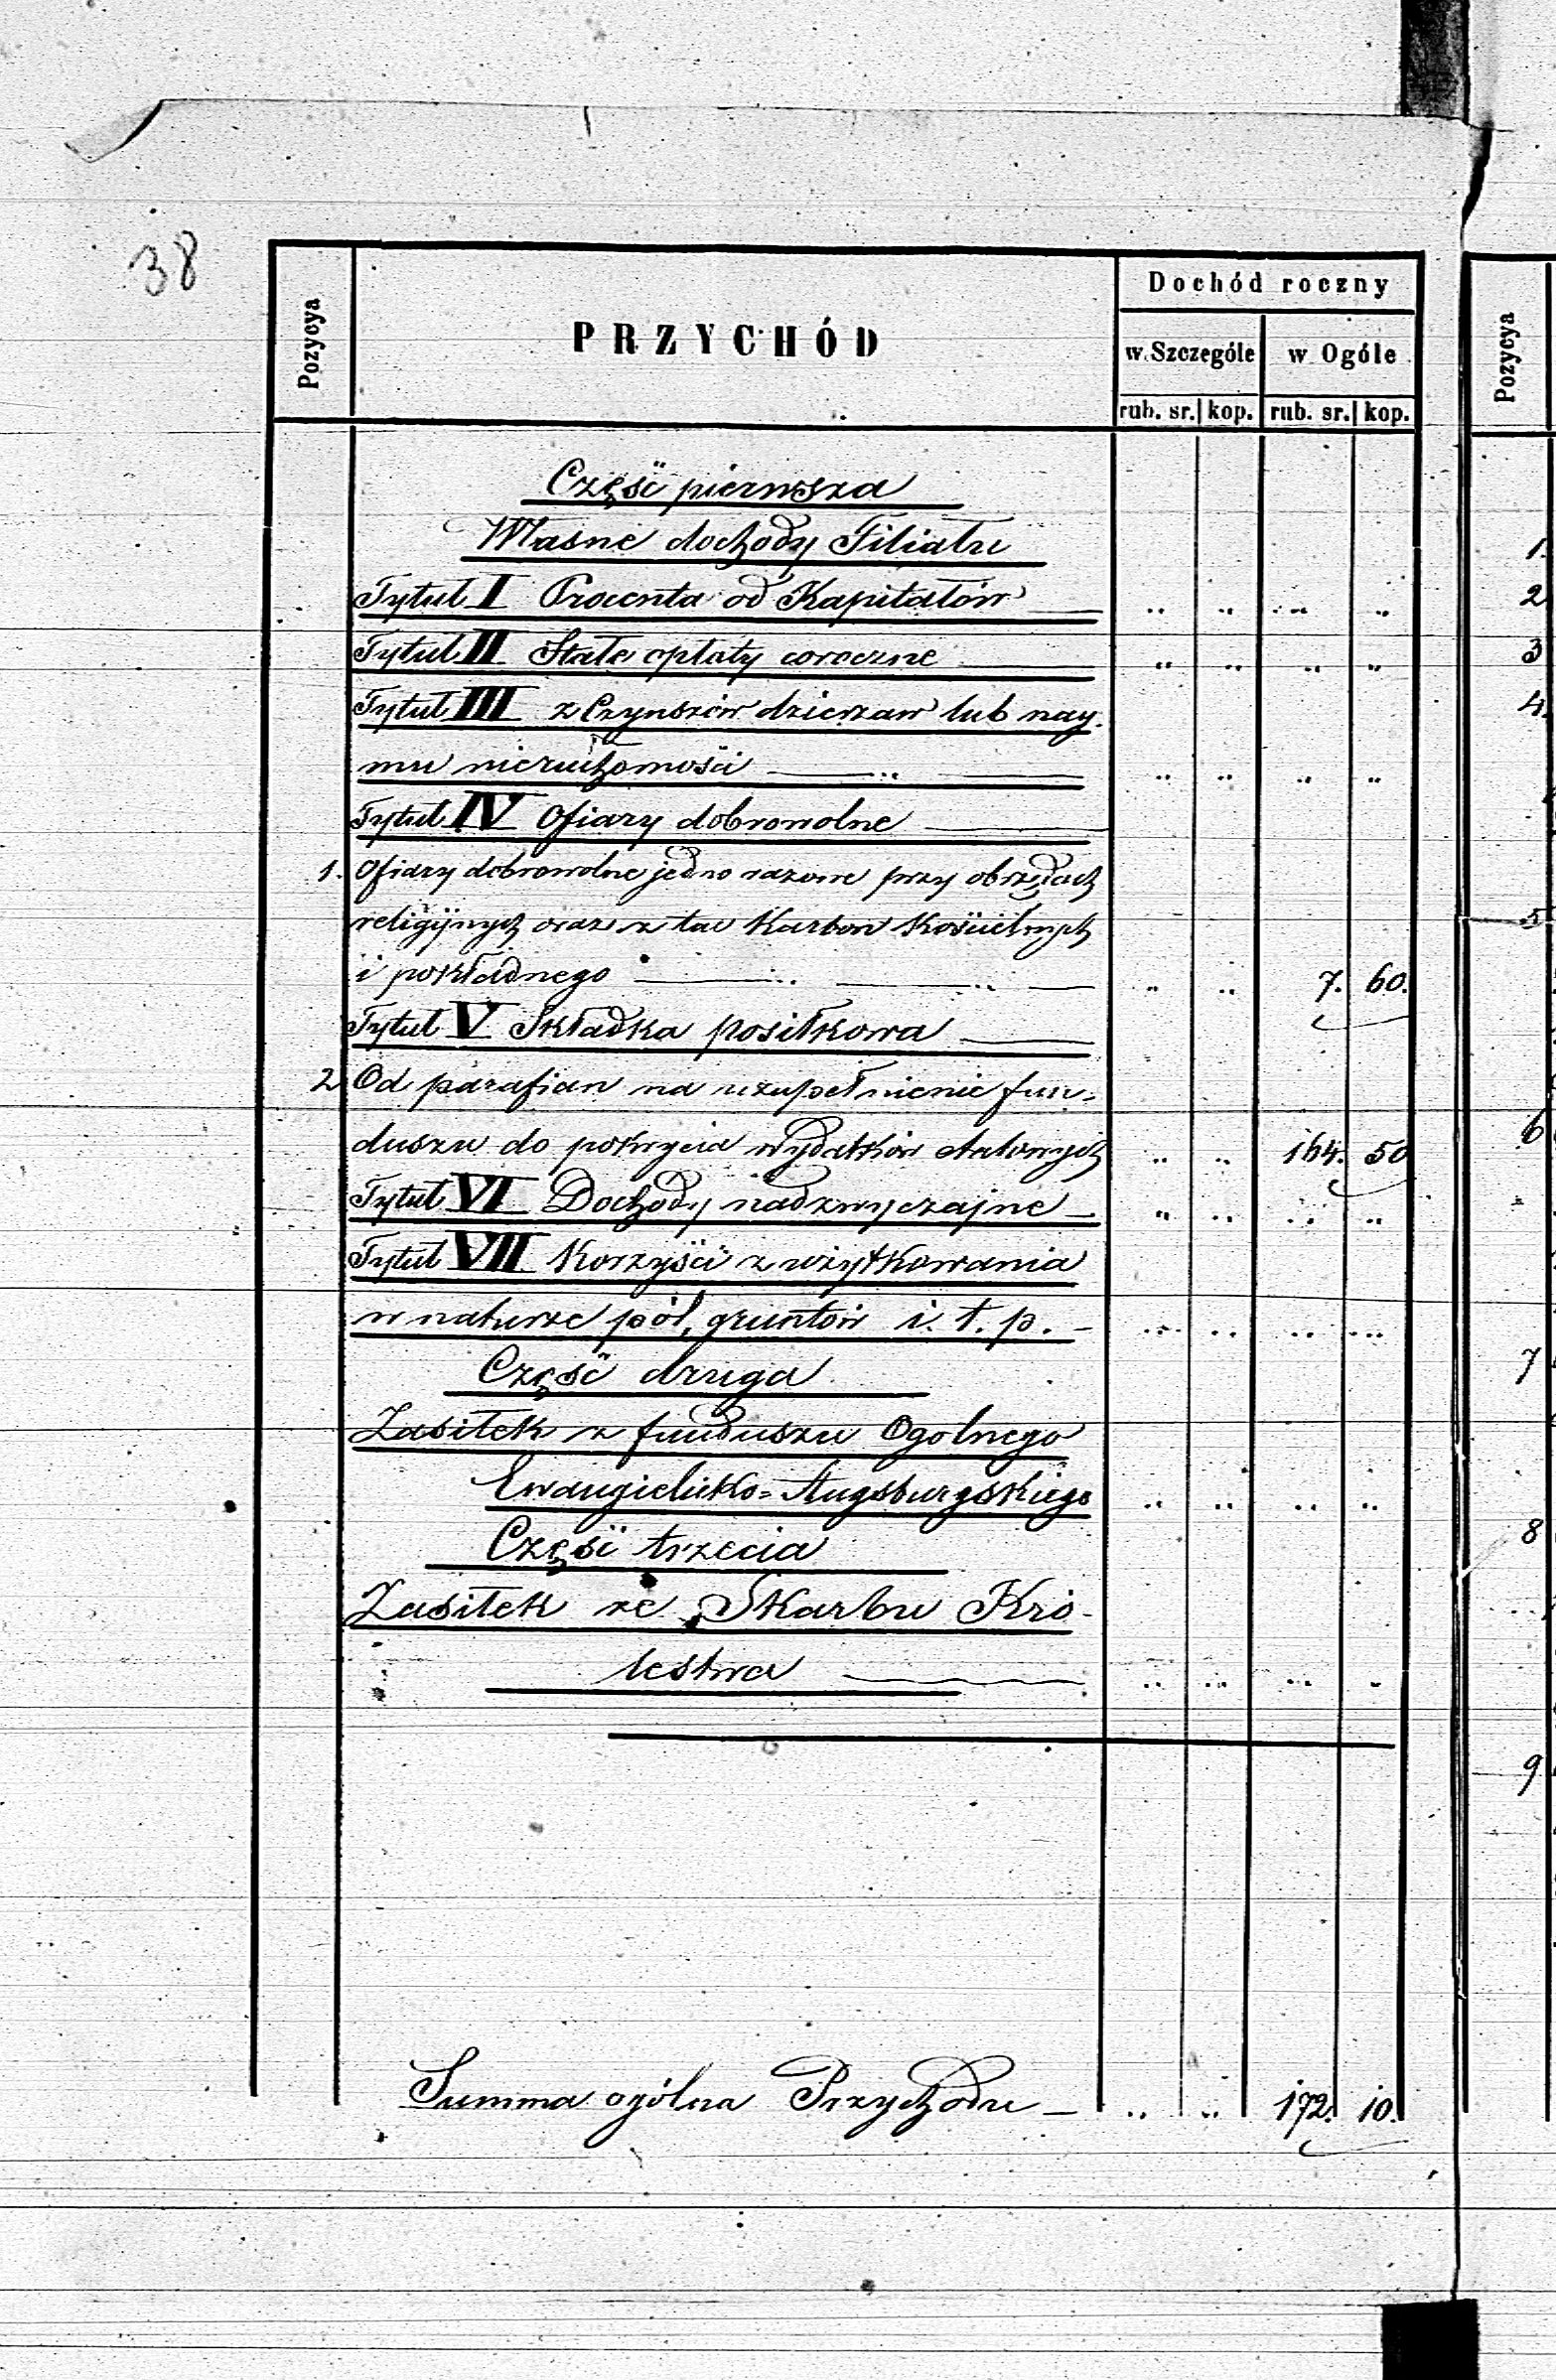 38
Pozycya
PRZYCHÓD
Dochód roczny
w Szczególe
w Ogóle
rub. sr. kop. rub. sr. kop.
Pozycya
Część pierwsza
Własne dochody Filiału
Tytuł I Procenta od Kapitałów — „ „ „ „
Tytuł II Stałe opłaty coroczne — „ „ „ „
Tytuł III z Czynszów dzierzaw lub nay-
mu nieruchomości — „ — „ „ „ „
Tytuł IV Ofiary dobrowolne —
1. Ofiary dobrowolne jedno razowe przy obrzędach
religijnych oraz z tac Karbon Kościelnych
i pokładnego — „ — „ — „ „ 7. 60.
Tytuł V Składka posiłkowa —
2 Od parafian na uzupełnienie fun-
duszu do pokrycia wydatków etatowych „ „ 164. 50
Tytuł VI Dochody nadzwyczajne — „ „ „ „
Tytuł VII Korzyści z użytkowania
w naturze pól, gruntów i. t. p. — „ „ „ „
Część druga
Zasiłek z funduszu Ogolnego
Ewangielicko-Augsburgskiego „ „ „ „
Część trzecia
Zasiłek ze Skarbu Kró-
lestwa — „ „ „ „
Summa ogólna Przychodu — „ „ 172. 10.
1.
2
3
4.
5
6
7
8
9